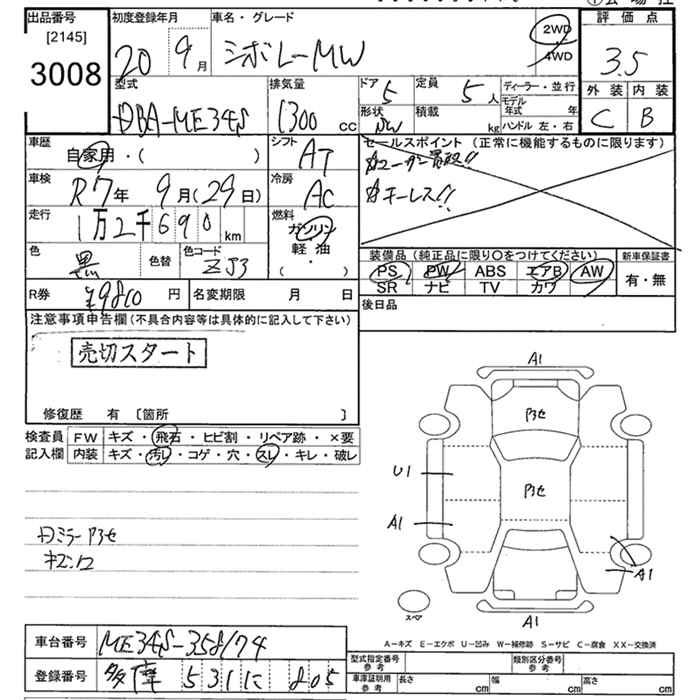 出品番号 初度登録年月 車名・グレード 評価点
[2145]
3008 20 9月 シボレーMW 2WD 4WD 3.5
外装 内装
C B
型式 排気量 ドア 定員 ディーラー・並行
DBA-ME34S 1300cc 5 5人 モデル年式 年
形状 積載 kg ハンドル 左・右
車歴 シフト セールスポイント (正常に機能するものに限ります)
自家用・( ) AT
車検 冷房 キーレス!!
R7年 9月(29日) AC
走行 燃料
1万2千690km ガソリン
軽油
・( )
色 色替 色コード
黒 ZJ3
装備品(純正品に限り○をつけてください) 新車保証書
PS PW ABS エアB AW 有・無
SR ナビ TV カワ
R券 ¥9810円 名変期限 月 日 後日品
注意事項申告欄(不具合内容等は具体的に記入して下さい)
売切スタート
修復歴 有 〔箇所 〕
検査員 FW キズ・飛石・ヒビ割・リペア跡・×要
記入欄 内装 キズ・汚レ・コゲ・穴・スレ・キレ・破レ
A1
U1
A1
A1
A1
スペア
A－キズ E－エクボ U－凹み W－補修跡 S－サビ C－腐食 XX－交換済
車台番号 ME34S-358174
登録番号 多摩 531 に 805
型式指定番号 参考 類別区分番号 参考
車庫証明用 参考 長さ cm 幅 cm 高さ cm